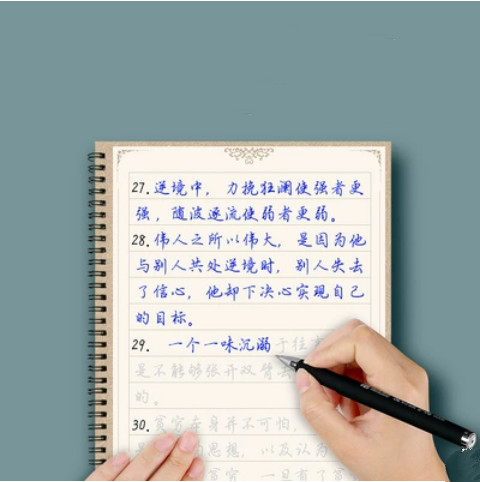 27.逆境中，力挽狂澜使强者更
强，随波逐流使弱者更弱。
28.伟人之所以伟大，是因为他
与别人共处逆境时，别人失去
了信心，他却下决心实现自己
的目标。
29. 一个一味沉溺于往
是不能够张开双臂去
的。
30.贫穷本身并不可怕，
是 思想，以及认为
贫穷，一旦有了贫